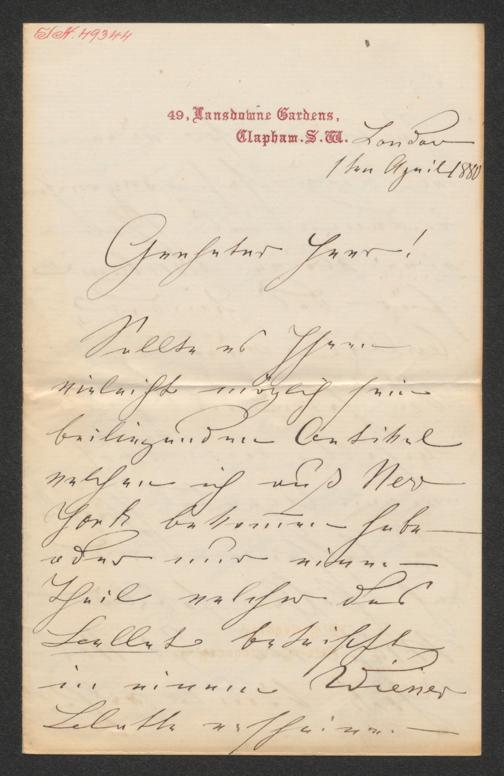 I.N. 49344
49, Lansdowne Gardens,
Clapham. S.W. London
1ten April 1880
Geehrter Herr!
Sollte es Ihnen
vieleicht möglich sein
beiliegenden Artikel
welchen ich auß New
York bekommen habe
oder nur einen
Theil welcher das
Ballet betrifft
in einem Wiener
Blatte erscheinen